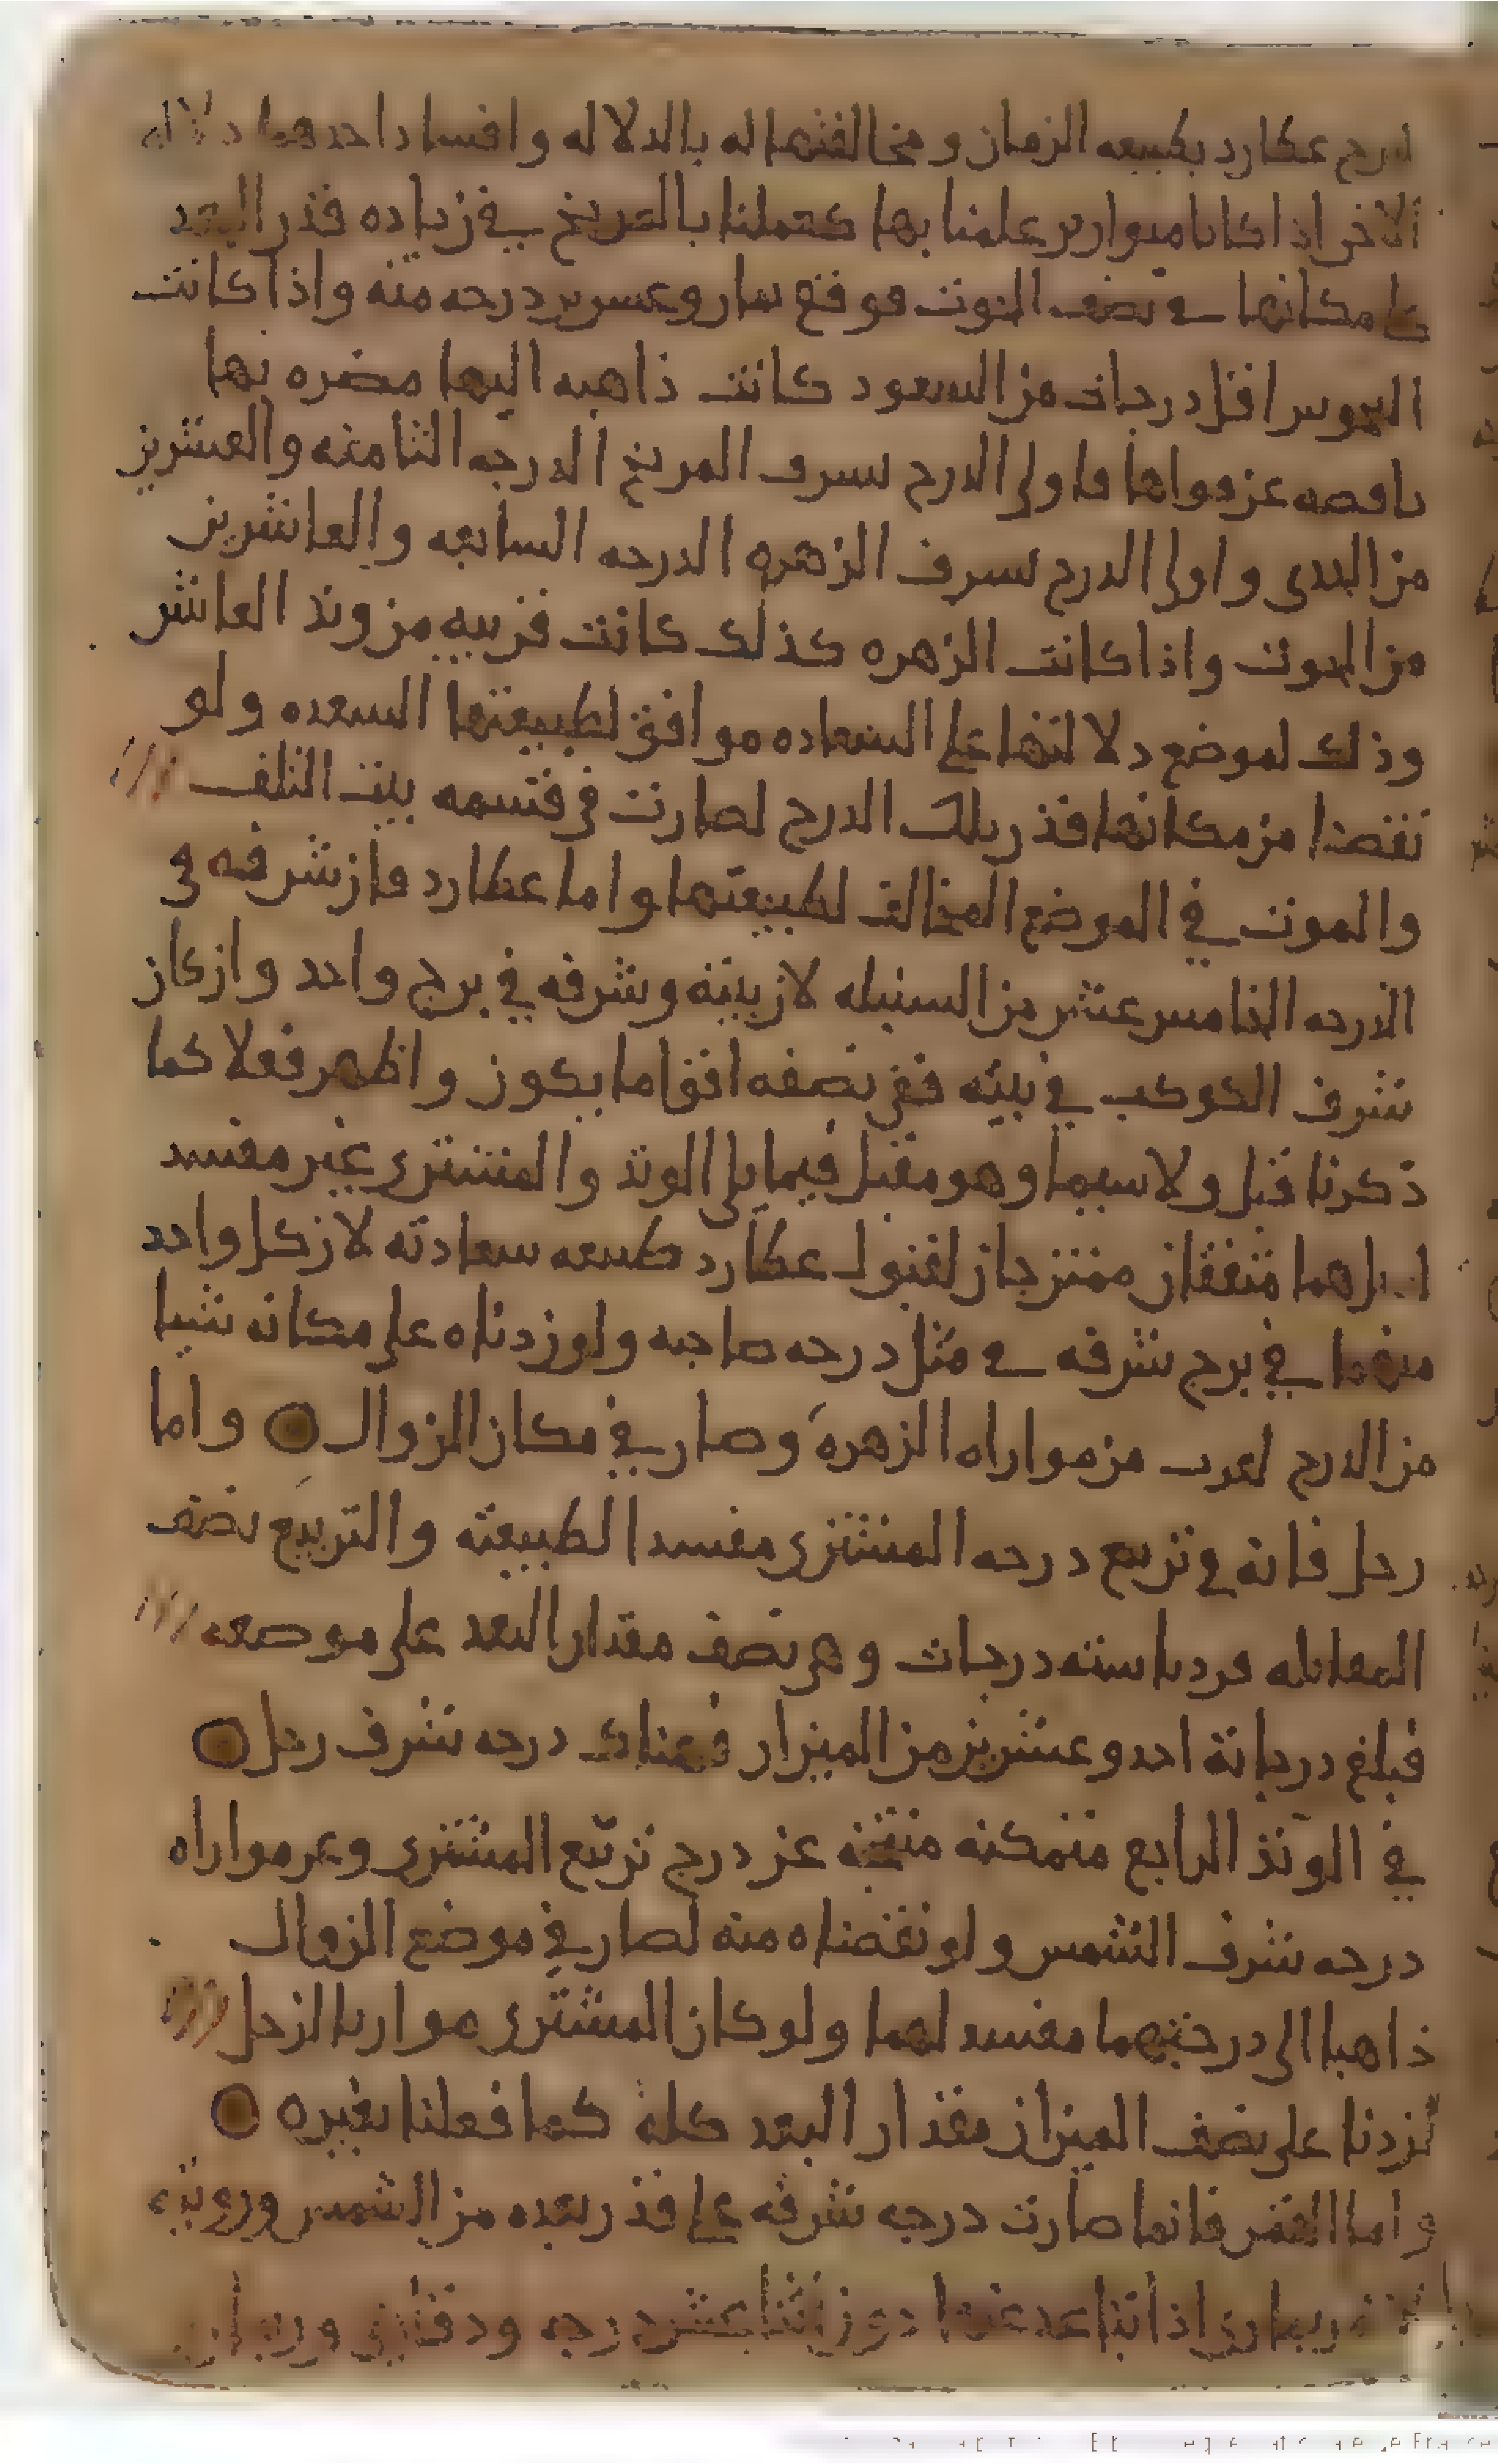 لدرج عطارد بطبيعه الزمان ومخالفتهما له بالدلاله وافساد احدهما دلاله
الاخر اذا كانا متوازيين علمنا بها كعملنا بالمريخ في زياده قدر البعد
على مكانها في نصف الحوت فوقع سبع وعشرين درجه منه واذا كانت
النحوس اقل درجات من السعود كانت ذاهبه اليها مضره بها
ناقصه عن قواها فاولى الدرج بشرف المريخ الدرجه الثامنه والعشرين
من الجدى واولى الدرج بشرف الزهره الدرجه السابعه والعاشرين
من الحوت واذا كانت الزهره كذلك كانت قريبه من وتد العاشر
وذلك لموضع دلالتها على السعاده موافق لطبيعتها السعده ولو
نقصنا من مكانها قدر تلك الدرج لصارت في قسمه بيت التلف
والموت في الموضع المخالف لطبيعتها واما عطارد فان شرفه في
الدرجه الخامس عشر من السنبله لان بيته وشرفه في برج واحد وان كان
شرف الكوكب في بيته ففي نصفه اقوا ما يكون واظهر فعلا كما
ذكرنا قبل ولا سيما وهو مقبل فيما يلى الوتد والمشترى غير مفسد
بل هما متفقان ممتزجان لقبول عطارد طبيعه سعادته لان كل واحد
منهما في برج شرفه في مثل درجه صاحبه ولو زدناه على مكانه شيا
من الدرج لقرب من موازاه الزهره وصار في مكان الزوال واما
زحل فانه في تربيع درجه المشترى مفسدا لطبيعته والتربيع نصف
المقابله فزدنا سته درجات وهي نصف مقدار البعد على موضعه
فبلغ درجاته احد وعشرين من الميزان فهناك درجه شرف زحل
في الوتد الرابع متمكنه منتحيه عن درج تربيع المشترى وعن موازاه
درجه شرف الشمس ولو نقضناه منه لصار في موضع الزوال
ذاهبا الى درجتيهما مفسد لهما ولو كان المشترى موازيا الزحل
لزدنا على نصف الميزان مقدار البعد كله كما فعلنا بغيره
واما القمر فانما صارت درجه شرفه على قدر بعده من الشمس ورويته
اذا تباعد عنها دون اثنا عشر درجه ودقايق